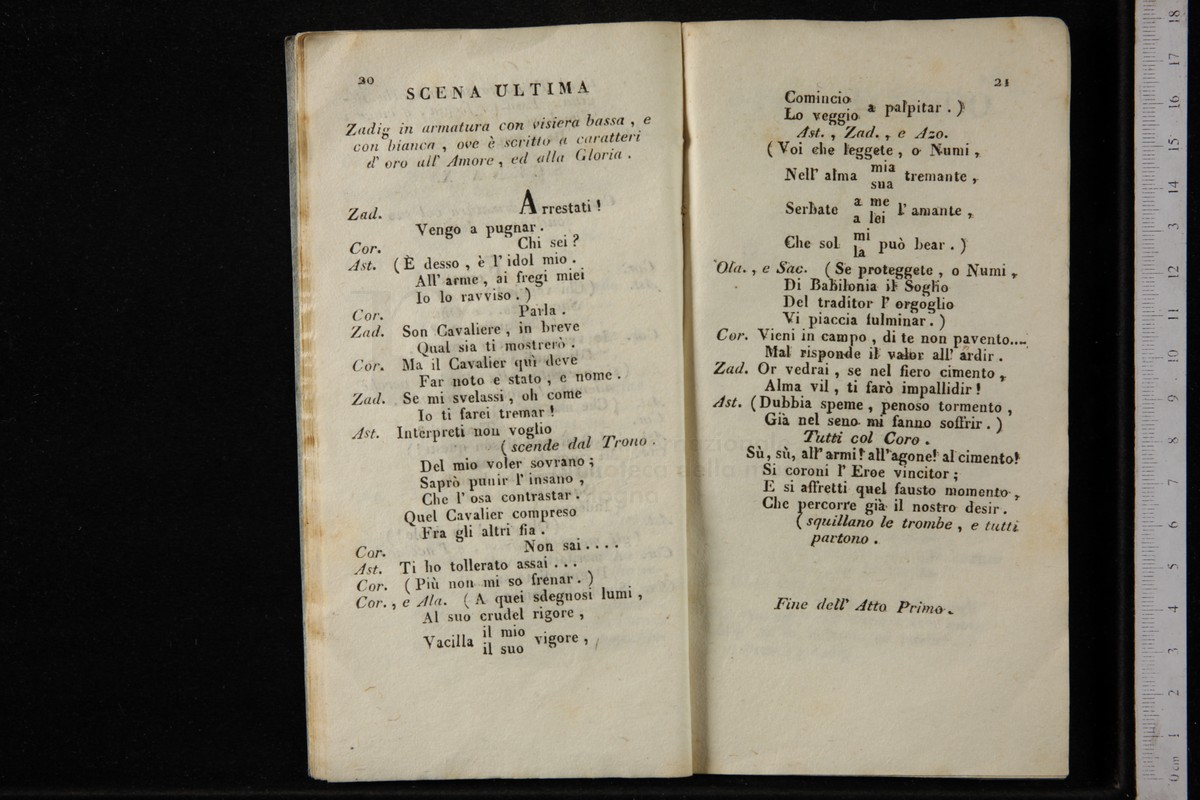 20
SCENA ULTIMA
Zadig in armatura con visiera bassa , e
con bianca , ove è scritto a caratteri
d' oro all' Amore , ed alla Gloria .
Zad. Arrestati !
Vengo a pugnar .
Cor. Chi sei ?
Ast. ( È desso , è l' idol mio .
All' arme , ai fregi miei
Io lo ravviso . )
Cor. Parla .
Zad. Son Cavaliere , in breve
Qual sia ti mostrerò .
Cor. Ma il Cavalier quì deve
Far noto e stato , e nome .
Zad. Se mi svelassi , oh come
Io ti farei tremar !
Ast. Interpreti non voglio
( scende dal Trono .
Del mio voler sovrano ;
Saprò punir l' insano ,
Che l' osa contrastar .
Quel Cavalier compreso
Fra gli altri fia .
Cor. Non sai . . . .
Ast. Ti ho tollerato assai . . .
Cor. ( Più non mi so frenar . )
Cor. , e Ala. ( A quei sdegnosi lumi ,
Al suo crudel rigore ,
Vacilla il mio vigore ,
il suo
21
Comincio a palpitar . )
Lo veggio
Ast. , Zad. , e Azo.
( Voi che leggete , o Numi ,
Nell' alma mia tremante ,
sua
Serbate a me l' amante ,
a lei
Che sol mi può bear . )
la
Ola. , e Sac. ( Se proteggete , o Numi ,
Di Babilonia il Soglio
Del traditor l' orgoglio
Vi piaccia fulminar . )
Cor. Vieni in campo , di te non pavento....
Mal risponde il valor all' ardir .
Zad. Or vedrai , se nel fiero cimento ,
Alma vil , ti farò impallidir !
Ast. ( Dubbia speme , penoso tormento ,
Già nel seno mi fanno soffrir . )
Tutti col Coro .
Sù, sù, all' armi ! all' agone! al cimento!
Si coroni l' Eroe vincitor ;
E si affretti quel fausto momento ,
Che percorre già il nostro desir .
( squillano le trombe , e tutti
partono .
Fine dell' Atto Primo .
0 cm 1 2 3 4 5 6 7 8 9 10 11 12 13 14 15 16 17 18